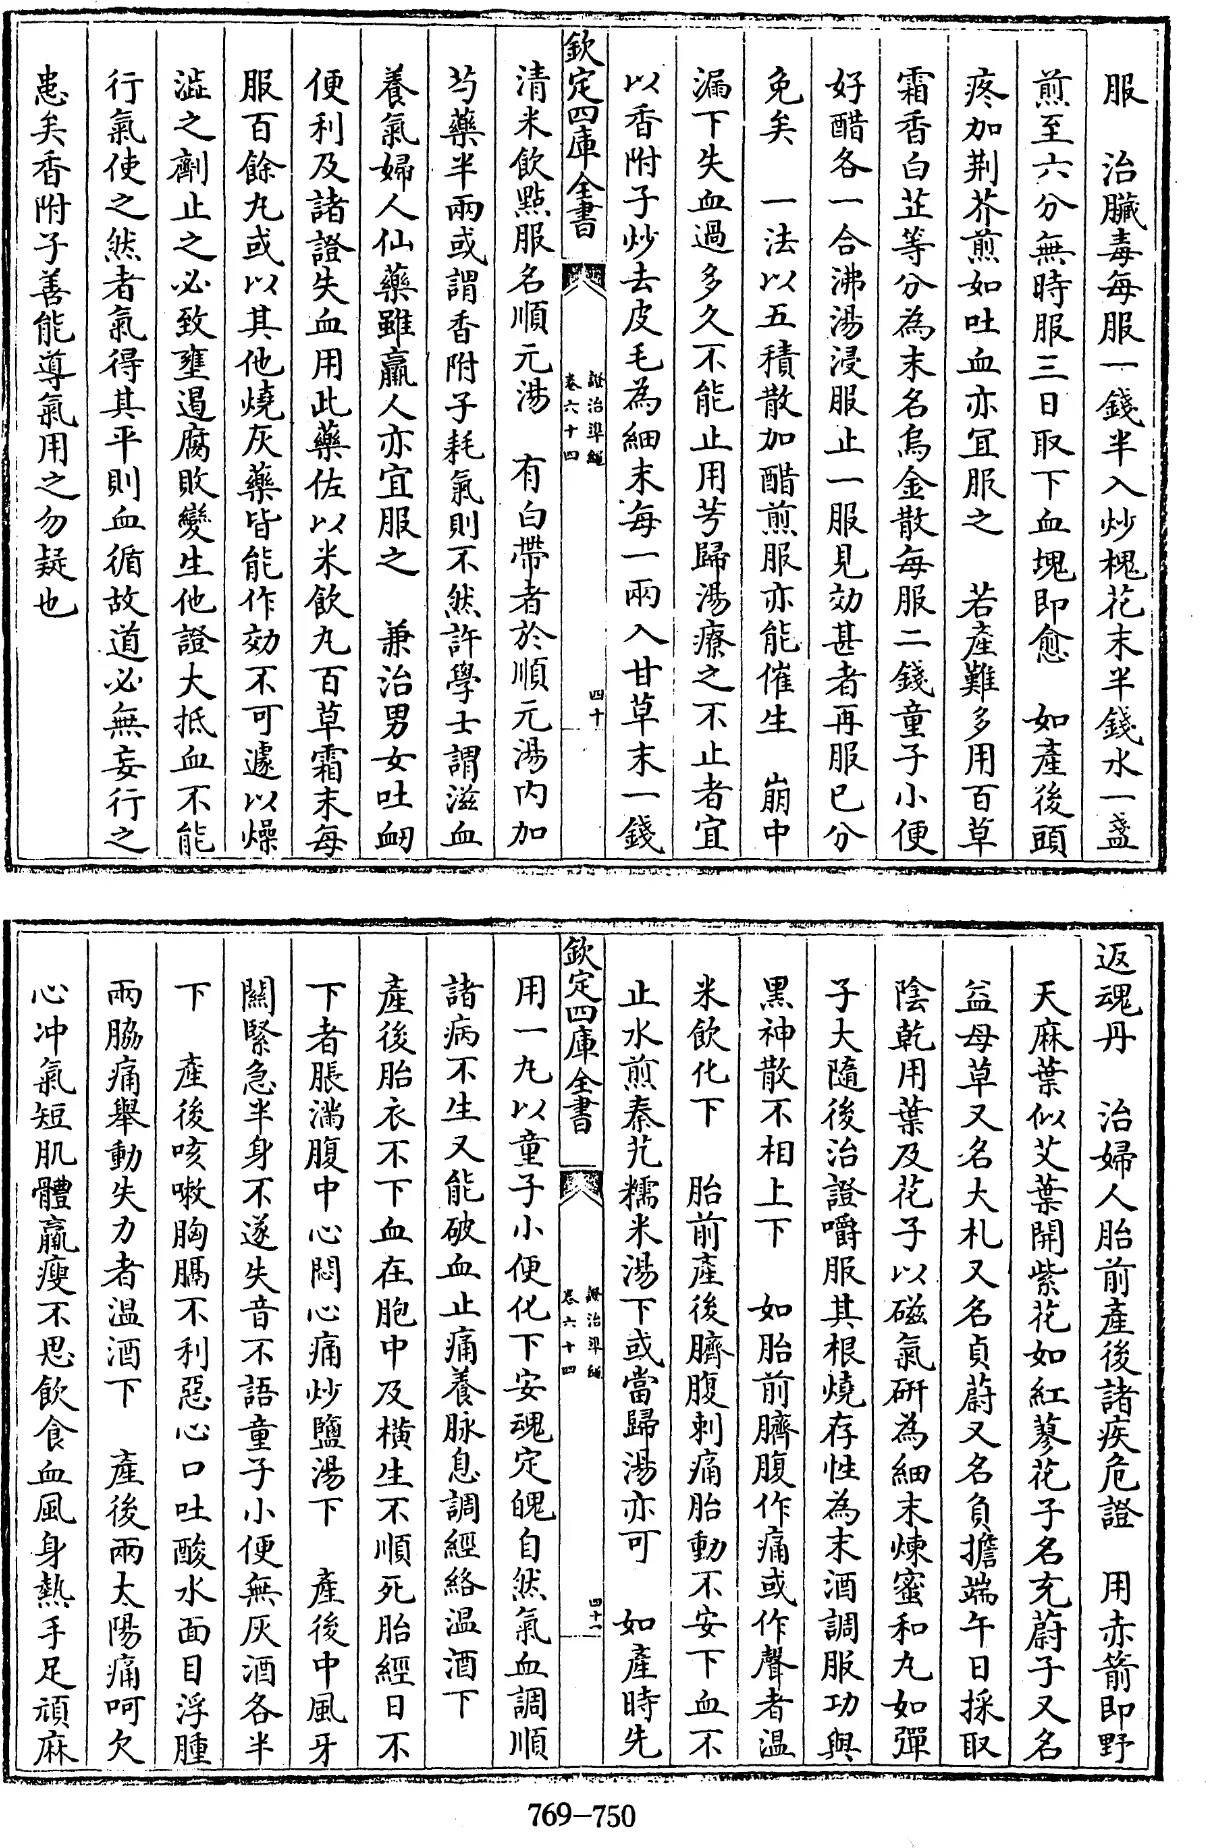 服　治臟毒每服一錢半入炒槐花末半錢水一盞
煎至六分無時服三日取下血塊即愈　如產後頭
疼加荆芥煎如吐血亦宜服之　若產難多用百草
霜香白芷等分為末名烏金散每服二錢童子小便
好醋各一合沸湯浸服止一服見効甚者再服已分
免矣　一法以五積散加醋煎服亦能催生　崩中
漏下失血過多久不能止用芎歸湯療之不止者宜
以香附子炒去皮毛為細末每一兩入甘草末一錢
欽定四庫全書
證治準繩
卷六十四
四十
清米飲點服名順元湯　有白帶者於順元湯内加
芍藥半兩或謂香附子耗氣則不然許學士謂滋血
養氣婦人仙藥雖羸人亦宜服之　兼治男女吐衂
便利及諸證失血用此藥佐以米飲丸百草霜末每
服百餘丸或以其他燒灰藥皆能作効不可遽以燥
澁之劑止之必致壅遏腐敗變生他證大抵血不能
行氣使之然者氣得其平則血循故道必無妄行之
患矣香附子善能導氣用之勿疑也
返魂丹　治婦人胎前產後諸疾危證　用赤箭即野
天麻葉似艾葉開紫花如紅蓼花子名充蔚子又名
益母草又名大札又名貞蔚又名負擔端午日採取
陰乾用葉及花子以磁氣研為細末煉蜜和丸如彈
子大隨後治證嚼服其根燒存性為末酒調服功與
黑神散不相上下　如胎前臍腹作痛或作聲者温
米飲化下　胎前產後臍腹刺痛胎動不安下血不
止水煎秦艽糯米湯下或當歸湯亦可　如產時先
欽定四庫全書
證治準繩
卷六十四
四十一
用一丸以童子小便化下安魂定魄自然氣血調順
諸病不生又能破血止痛養脉息調經絡温酒下
產後胎衣不下血在胞中及橫生不順死胎經日不
下者脹滿腹中心悶心痛炒鹽湯下　產後中風牙
關緊急半身不遂失音不語童子小便無灰酒各半
下　產後咳嗽胸膈不利惡心口吐酸水面目浮腫
兩脇痛舉動失力者温酒下　產後兩太陽痛呵欠
心冲氣短肌體羸瘦不思飲食血風身熱手足頑麻
769–750